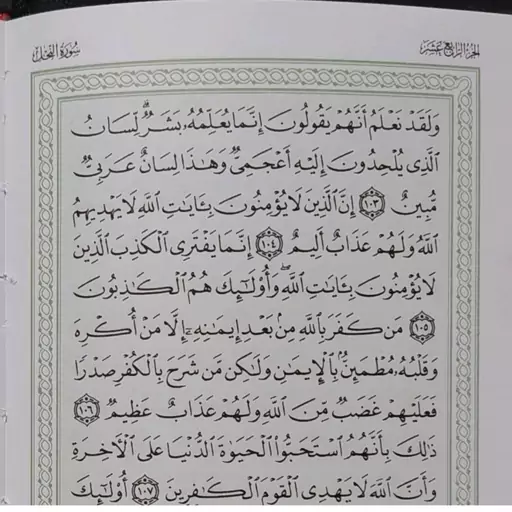 الجزء الرابع عشر
سورة النحل
وَلَقَدْ نَعْلَمُ أَنَّهُمْ يَقُولُونَ إِنَّمَا يُعَلِّمُهُۥ بَشَرٌۗ لِّسَانُ
ٱلَّذِى يُلْحِدُونَ إِلَيْهِ أَعْجَمِىٌّ وَهَٰذَا لِسَانٌ عَرَبِىٌّ
مُّبِينٌ ١٠٣ إِنَّ ٱلَّذِينَ لَا يُؤْمِنُونَ بِـَٔايَٰتِ ٱللَّهِ لَا يَهْدِيهِمُ
ٱللَّهُ وَلَهُمْ عَذَابٌ أَلِيمٌ ١٠٤ إِنَّمَا يَفْتَرِى ٱلْكَذِبَ ٱلَّذِينَ
لَا يُؤْمِنُونَ بِـَٔايَٰتِ ٱللَّهِۖ وَأُو۟لَٰٓئِكَ هُمُ ٱلْكَٰذِبُونَ
١٠٥ مَن كَفَرَ بِٱللَّهِ مِنۢ بَعْدِ إِيمَٰنِهِۦٓ إِلَّا مَنْ أُكْرِهَ
وَقَلْبُهُۥ مُطْمَئِنٌّۢ بِٱلْإِيمَٰنِ وَلَٰكِن مَّن شَرَحَ بِٱلْكُفْرِ صَدْرًا
فَعَلَيْهِمْ غَضَبٌ مِّنَ ٱللَّهِ وَلَهُمْ عَذَابٌ عَظِيمٌ ١٠٦
ذَٰلِكَ بِأَنَّهُمُ ٱسْتَحَبُّوا۟ ٱلْحَيَوٰةَ ٱلدُّنْيَا عَلَى ٱلْءَاخِرَةِ
وَأَنَّ ٱللَّهَ لَا يَهْدِى ٱلْقَوْمَ ٱلْكَٰفِرِينَ ١٠٧ أُو۟لَٰٓئِكَ